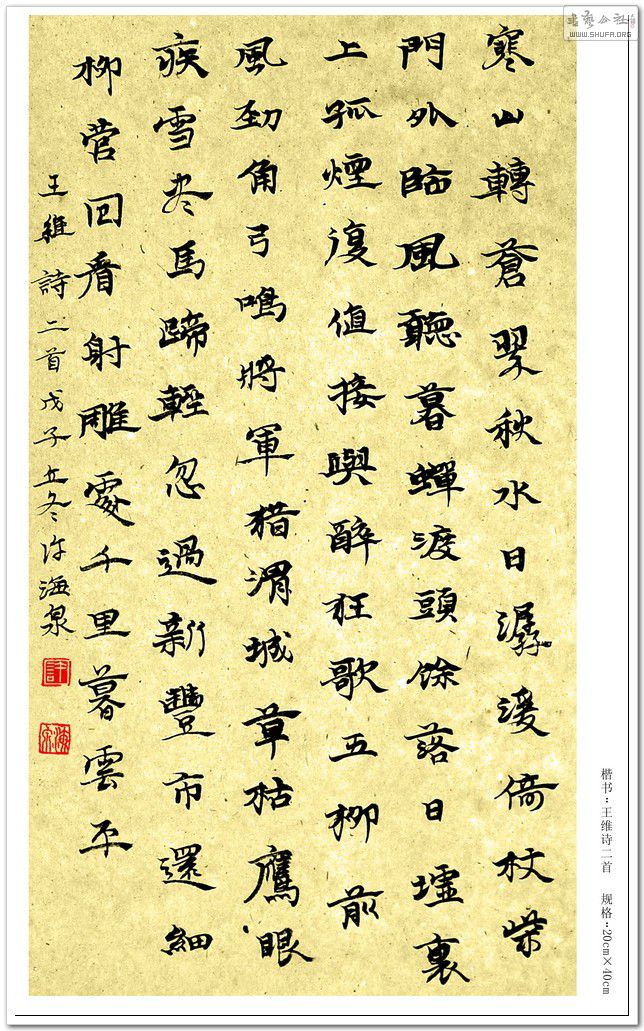 寒山轉蒼翠秋水日潺湲倚杖柴
門外臨風聽暮蟬渡頭餘落日墟裏
上孤煙復值接輿醉狂歌五柳前
風勁角弓鳴將軍猎渭城草枯鷹眼
疾雪尽馬蹄輕忽過新豐市還細
柳营回看射雕處千里暮雲平
王維詩二首戊子立冬许海泉
楷书：王维诗二首 规格：20cm×40cm
WWW.SHUFA.ORG